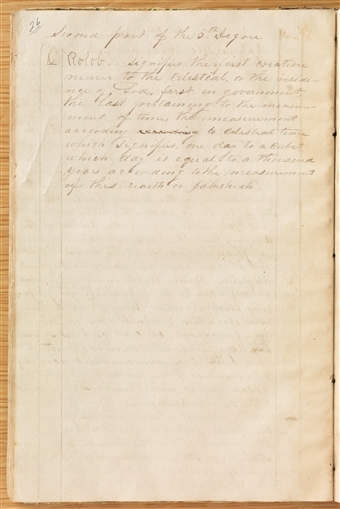 26
Second part of the 5th degree
Kolob. Signifies the first creation
nearer to the celestial, or the reside
nce of God, first in government,
the last pertaining to the measure
ment of time, the measurement
according to celestial time
which signifies one day to a cubit
which day is equal to a thousand
years according to the measurement
of this earth or Jah=oh=eh